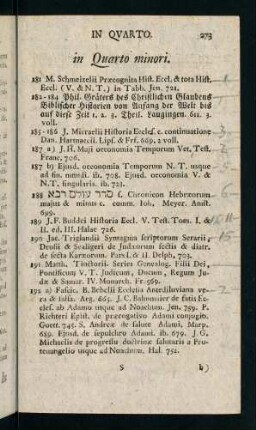 IN QVARTO. 273
in Quarto minori.
181 M. Schmeizelii Præcognita Hist. Eccl. & tota Hist.
Eccl. (V. & N. T.) in Tabb. Jen. 721.
182-184 Phil. Gräters des Christlichen Glaubens
Biblischer Historien von Anfang der Welt bis
auf diese Zeit 1. 2. 3. Theil. Laugingen. 611. 3.
voll.
185-186 J. Micraelii Historia Ecclef. c. continuatione
Dan. Hartnaccii. Lipf. & Frf. 669. 2 voll.
187 a) J. H. Maji oeconomia Temporum Vet. Test.
Franc. 706.
187 b) Ejusd. oeconomia Temporum N. T. usque
ad fin. mundi. ib. 708. Ejusd. oeconomia V. &
N. T. singularis. ib. 721.
188 סדר עולם רבא f. Chronicon Hebræorum
majus & minus c. comm. Joh. Meyer. Amst.
699.
189 J. F. Buddei Historia Eccl. V. Test. Tom. I. &
II. ed. III. Halae 726.
190 Jac. Triglandii Syntagma scriptorum Serarii,
Drusii & Scaligeri de Judæorum sectis & diatr.
de secta Karæorum. Pars I. & II. Delph. 703.
191 Matth. Tischerii Series Genealog. Filii Dei,
Pontificum V. T. Judicum, Ducum, Regum Judæ
& Samar. IV. Monarch. Fr. 569.
192 a) Fascic. B. Bebelii Ecclesia Antediluviana vera
& falsa. Arg. 665. J. C. Bahnmaier de fatis Eccles.
ab Adamo usque ad Noachum. Jen. 759. P.
Richteri Epist. de prærogativo Adami conjugio.
Goett. 745. S. Andreæ de salute Adami. Marp.
689. Ejusd. de sepulchro Adami. ib. 679. J. G.
Michaelis de progressu doctrinæ salutaris a Protevangelio
usque ad Noachum. Hal. 752.
S b)